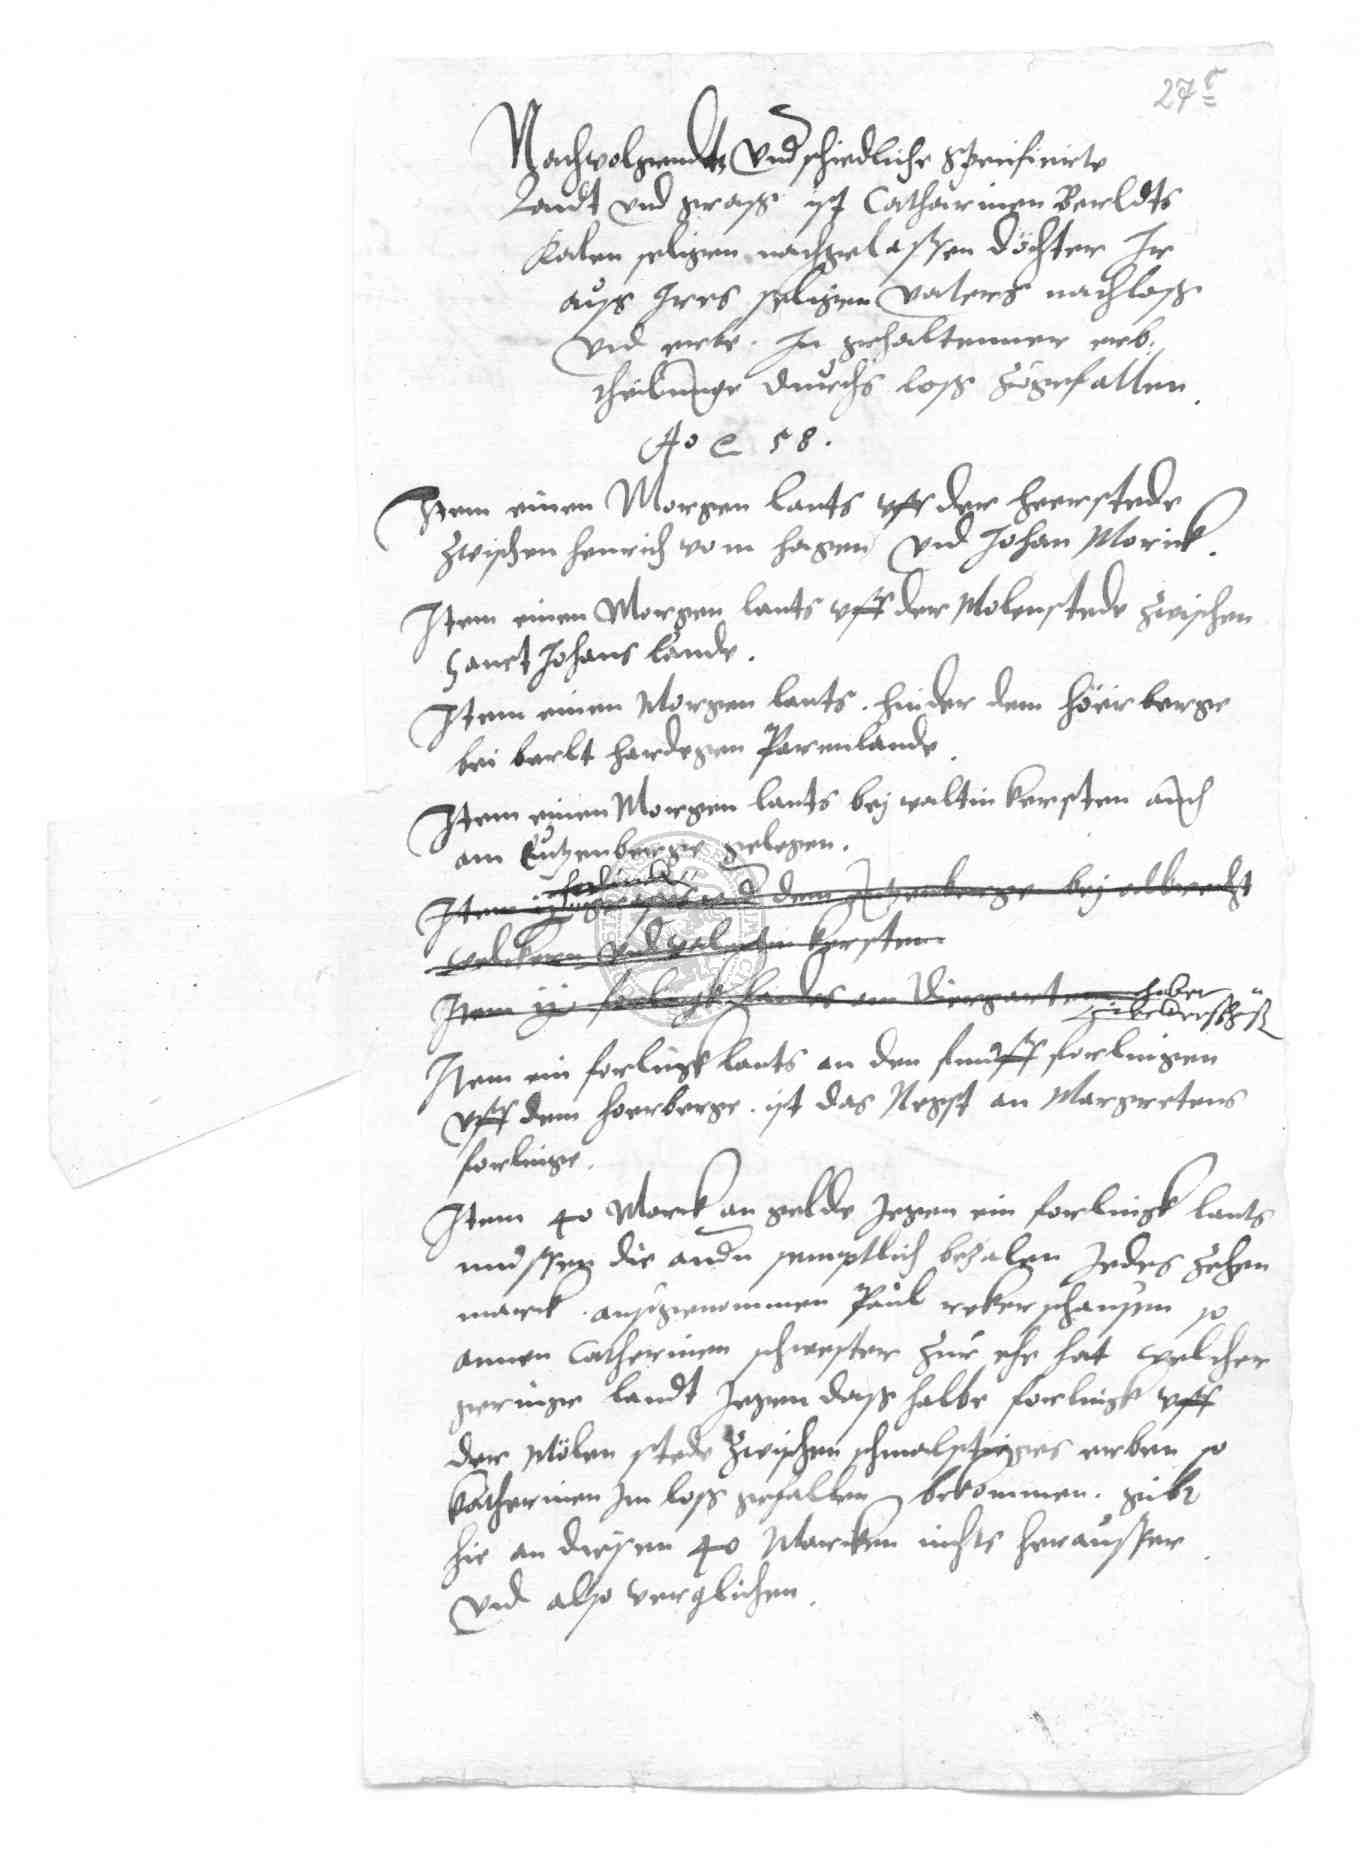 27
Nachvolgendt Undschiedliche Specificirte
Landt und graß ist Catharinen Berldts
Kalen seligen nachgelaßen döchter Ir
auß Ires seligen Vaters nachloß
und erbe. In gehaltenner erb.
theilunge durchs loß zugefallen.
Ao 58.
Item einen Morgen lants uff der heerstede
Zwischen henrich vom hagen und Johan Morick.
Item einen Morgen lants uff der Molenstede zwischen
Sanct Johans lande.
Item einen Morgen lants. hinder dem höerberge
bei berlt hardegen Parenlande.
Item einen Morgen lants bej valtin kersten auch
am gelegen.
forlinge
Item dem bej albrecht
und valentin kersten
Item ij forlingk landes am Diergarten
Item ein forlingk lants an den funff forlingen
uff dem hoerberge. ist das Negst an Margretens
forlinge.
Item 40 Marck an gelde Jegen ein forlingk lants
mussen die andn semptlich bezalen Jedes Zehen
marck. ausgenommen Paul rekerschausen so
annen Catherinen schwester zur ehe hat welcher
geringe landt Jegen daß halbe forlingk uff
der Mölen stede Zwischen erben so
Katherinen Im loß gefallen bekommen. gibt
hie an diesen 40 Marcken nichts heraußer.
und also verglichen.